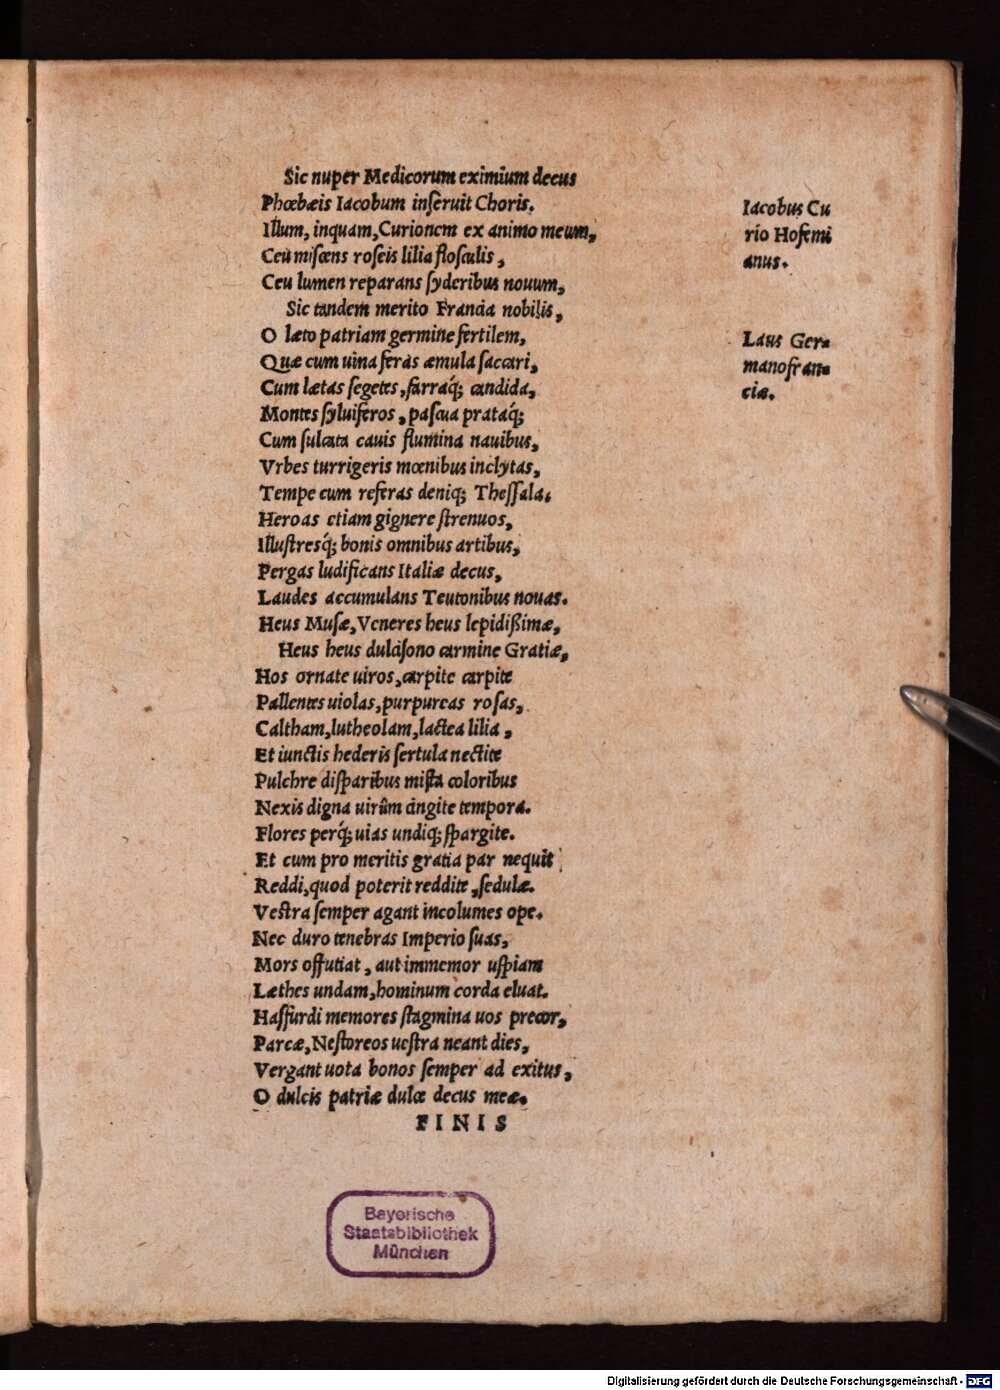 Sic nuper Medicorum eximium decus
Phœbæis Iacobum inseruit Choris.
Illum, inquam, Curionem ex animo meum,
Ceu miscens roseis lilia flosculis,
Ceu lumen reparans syderibus nouum,
Sic tandem merito Francia nobilis,
O læto patriam germine fertilem,
Quæ cum uina feras æmula saccari,
Cum lætas segetes, farraq́; candida,
Montes syluiferos, pascua prataq́;
Cum sulcata cauis flumina nauibus,
Vrbes turrigeris mœnibus inclytas,
Tempe cum referas deniq; Thessala.
Heroas etiam gignere strenuos,
Illustresq́; bonis omnibus artibus,
Pergas ludificans Italiæ decus,
Laudes accumulans Teutonibus nouas.
Heus Musæ, Veneres heus lepidißimæ,
Heus heus dulcisono carmine Gratiæ,
Hos ornate uiros, carpite carpite
Pallentes uiolas, purpureas rosas,
Caltham, lutheolam, lactea lilia,
Et iunctis hederis sertula nectite
Pulchre disparibus mista coloribus
Nexis digna uirûm cingite tempora.
Flores perq́; uias undiq; spargite.
Et cum pro meritis gratia par nequit
Reddi, quod poterit reddite, sedulæ.
Vestra semper agant incolumes ope.
Nec duro tenebras Imperio suas,
Mors offutiat, aut immemor uspiam
Læthes undam, hominum corda eluat.
Hassurdi memores stagmina uos precor,
Parcæ, Nestoreos uestra neant dies,
Vergant uota bonos semper ad exitus,
O dulcis patriæ dulce decus meæ.
FINIS
Iacobus Cu
rio Hofemi
anus.
Laus Ger=
manofran=
ciæ.
Bayerische
Staatsbibliothek
München
Digitalisierung gefördert durch die Deutsche Forschungsgemeinschaft - DFG